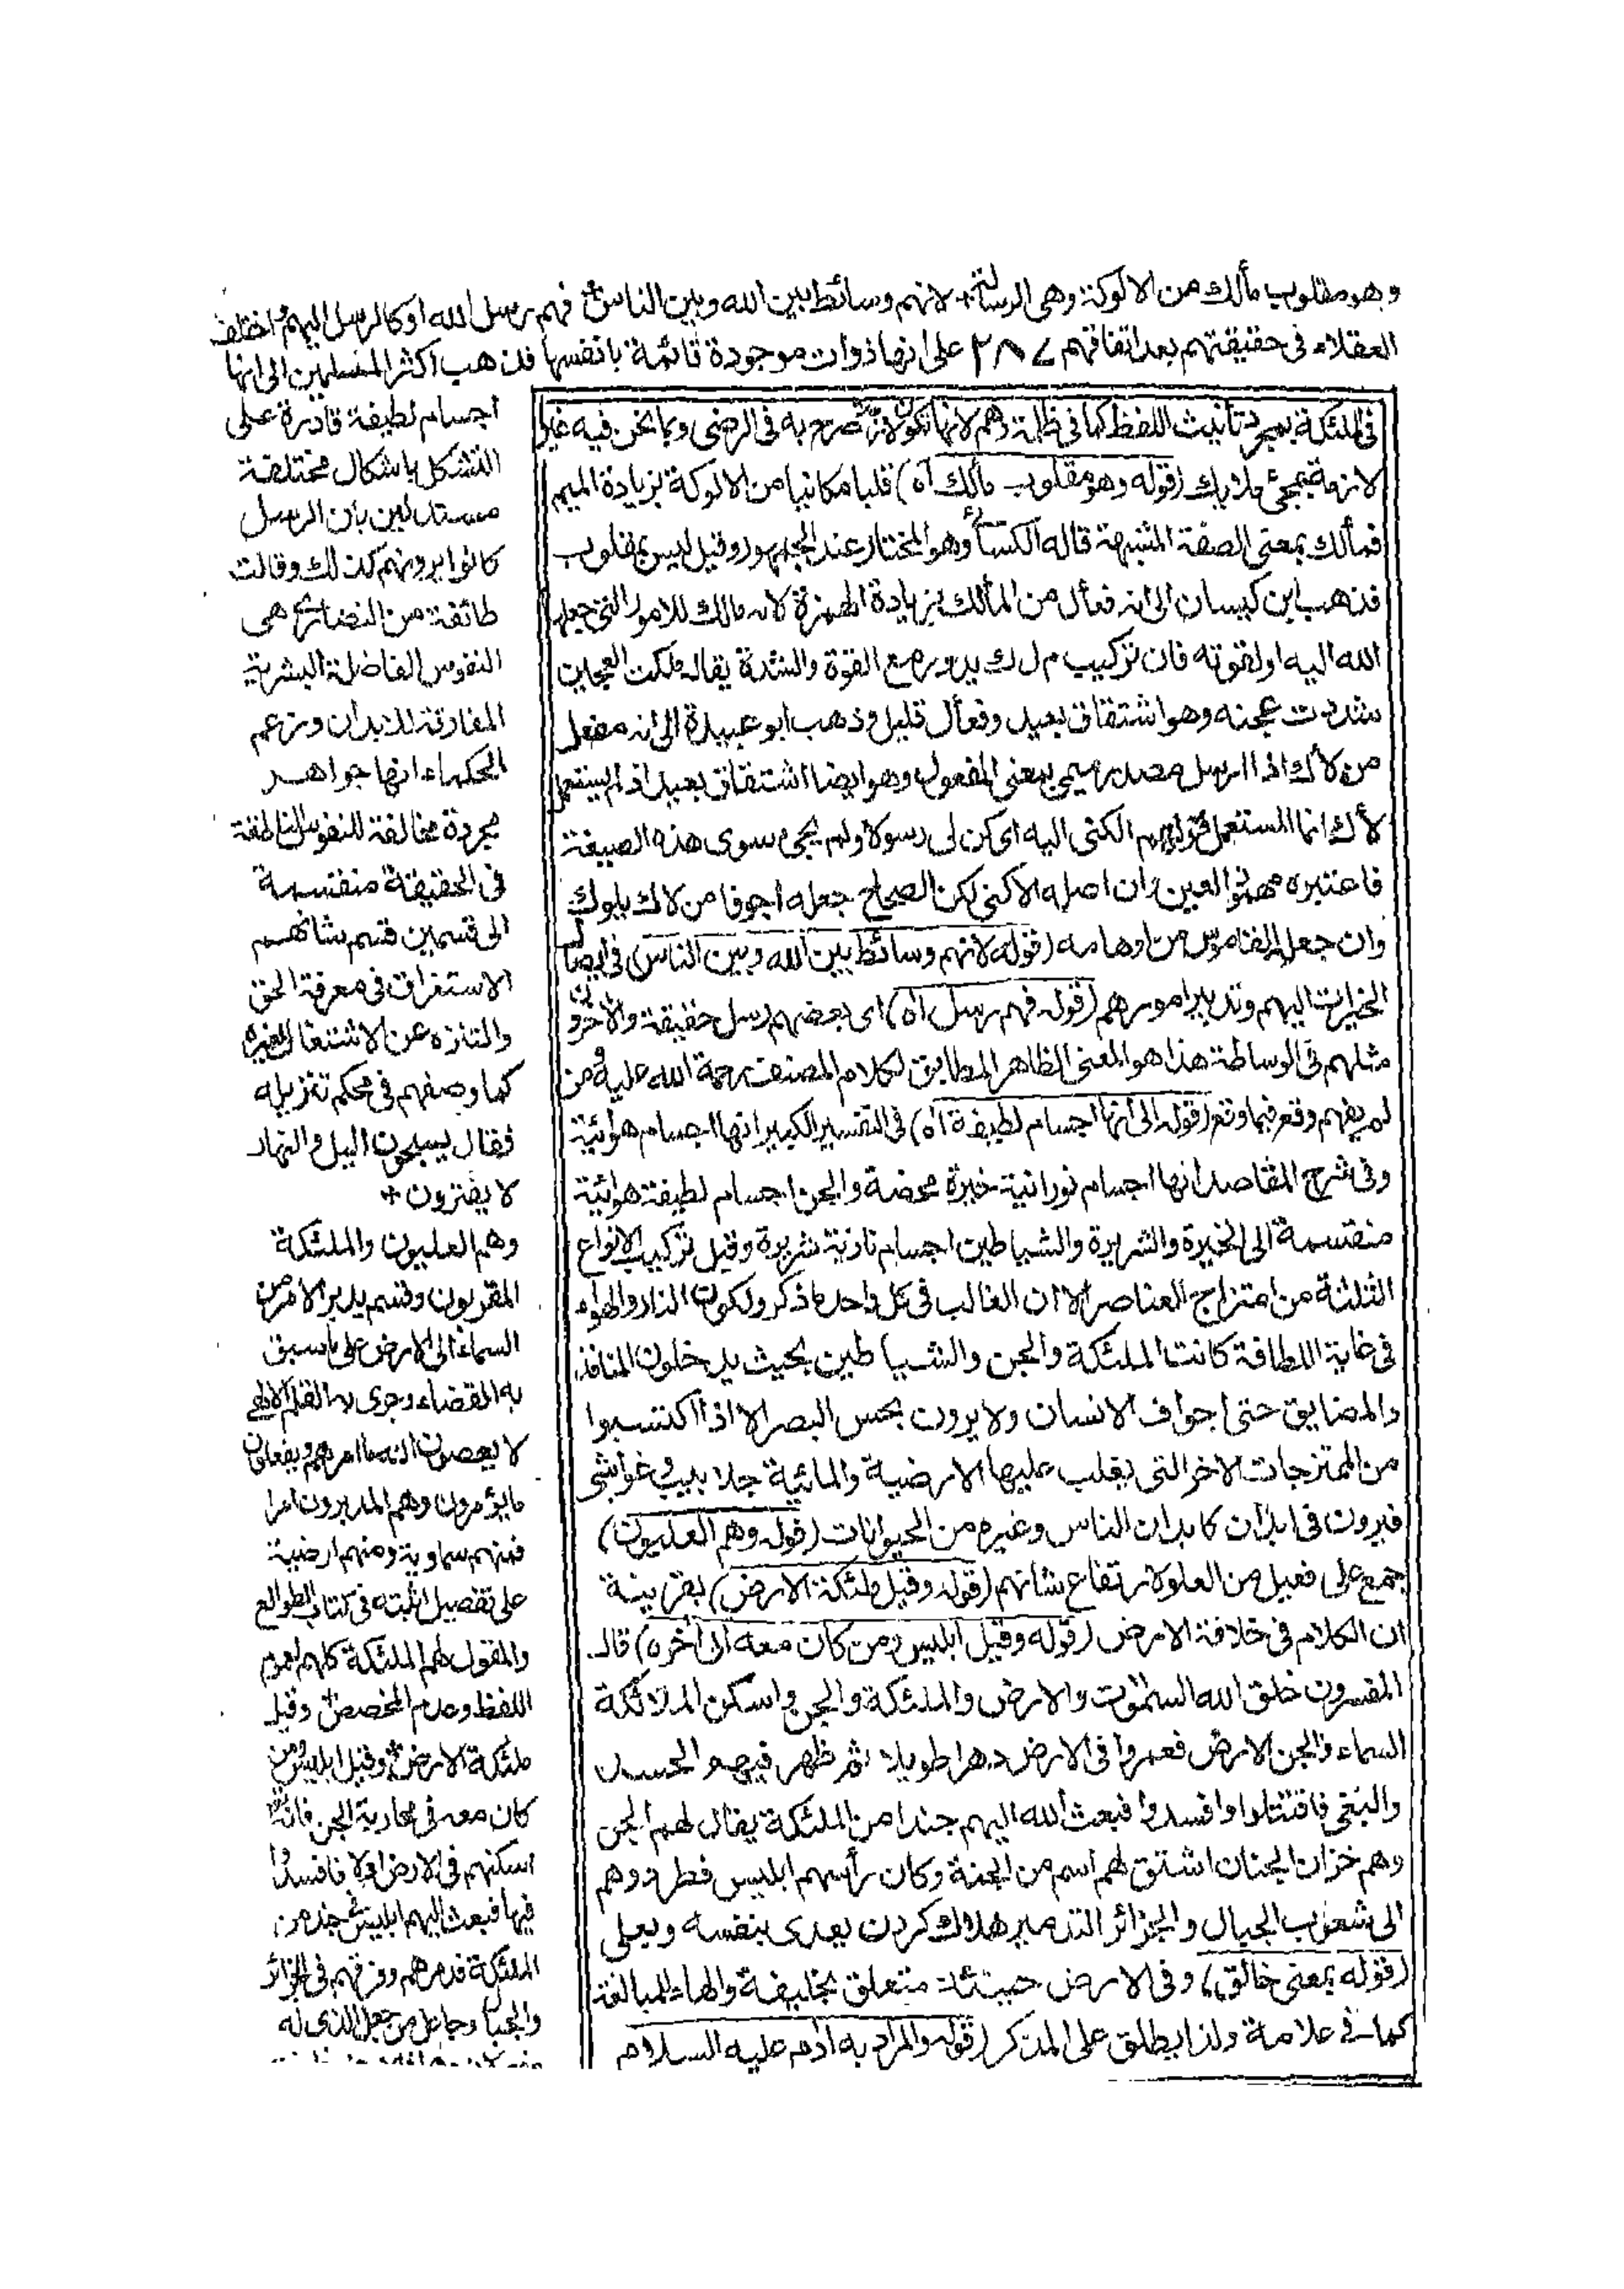 وهو مقلوب مألك من الالوكة وهى الرسالة لانهم وسائط بين الله وبين الناس فهم رسل الله او كالرسل اليهم واختلف
العقلاء فى حقيقتهم بعد اتفاقهم ٢٨٧ على انها ذوات موجودة قائمة بانفسها فذهب اكثر المسلمين الى انها
اجسام لطيفة قادرة على
التشكل باشكال مختلفة
مستدلين بان الرسل
كانوا يرونهم كذلك وقالت
طائفة من النصارى هى
النفوس الفاضلة البشرية
المفارقة للابدان وزعم
الحكماء انها جواهر
مجردة مخالفة للنفوس الناطقة
فى الحقيقة منقسمة
الى قسمين قسم شانهم
الاستغراق فى معرفة الحق
والتنزه عن الاشتغال بغيره
كما وصفهم فى محكم تنزيله
فقال يسبحون اليل والنهار
لا يفترون
وهم العليون والملئكة
المقربون وقسم يدبر الامر من
السماء الى الارض على ما سبق
به القضاء وجرى به القلم الالهى
لا يعصون الله ما امرهم ويفعلون
ما يؤمرون وهم المدبرون امرا
فمنهم سماوية ومنهم ارضية
على تفصيل اثبته فى كتاب الطوالع
والمقول لهم الملئكة كلهم لعموم
اللفظ وعدم المخصص وقيل
ملئكة الارض وقيل ابليس ومن
كان معه فى محاربة الجن فانه
اسكنهم فى الارض اولا فافسدوا
فيها فبعث اليهم ابليس فى جند من
الملئكة فدمرهم وفرقهم فى الجزائر
والجبال وجاعل من جعل الذى له
فى الملئكة بمجرد تأنيث اللفظ كما فى ظلمة صرح به فى الرضى وبما نحن فيه غير
لازمة بمجئ ملايك (قوله وهو مقلوب مألك اه) قلبا مكانيا من الالوكة بزيادة الميم
فمألك بمعنى الصفة المشبهة قاله الكسائى وهو المختار عند الجمهور وقيل ليس بمقلوب
فذهب ابن كيسان الى انه فعأل من المألك بزيادة الهمزة لانه مالك للامور التى جعلها
الله اليه او لقوته فان تركيب م ل ك يدور مع القوة والشدة يقال ملكت العجين
شددت عجنه وهو اشتقاق بعيد وفعأل قليل وذهب ابو عبيدة الى انه مفعل
من لأك اذا ارسل مصدر ميمى بمعنى المفعول وهو ايضا اشتقاق بعيد اذ لم يستعمل
لأك انما المستعمل قولهم الكنى اليه اى كن لى رسولا ولم يجئ سوى هذه الصيغة
فاعتبره مهموز العين وان اصله الأكنى لكن الصحاح جعله اجوفا من لاك يلوك
وان جعله القاموس من اوهامه (قوله لانهم وسائط بين الله وبين الناس) فى ايصال
الخيرات اليهم وتدبير امورهم (قوله فهم رسل اه) اى بعضهم رسل حقيقة والآخرون
مثلهم فى الوساطة هذا هو المعنى الظاهر المطابق لكلام المصنف رحمة الله عليه ومن
لم يفهم وقع فيما وقع (قوله الى انها اجسام لطيفة اه) فى التفسير الكبير انها اجسام هوائية
وفى شرح المقاصد انها اجسام نورانية خيرة محضة والجن اجسام لطيفة هوائية
منقسمة الى الخيرة والشريرة والشياطين اجسام نارية شريرة وقيل تركيب الانواع
الثلثة من امتزاج العناصر الا ان الغالب فى كل واحد ما ذكر ولكون النار والهواء
فى غاية اللطافة كانت الملئكة والجن والشياطين بحيث يدخلون المنافذ
والمضايق حتى اجواف الانسان ولا يرون بحس البصر الا اذا اكتسبوا
من الممتزجات الاخر التى يغلب عليها الارضية والمائية جلابيب وغواشى
فيرون فى ابدان كابدان الناس وغيره من الحيوانات (قوله وهم العليون)
جمع على فعيل من العلو لارتفاع شانهم (قوله وقيل ملئكة الارض) بقرينة
ان الكلام فى خلافة الارض (قوله وقيل ابليس ومن كان معه الى آخره) قال
المفسرون خلق الله السموات والارض والملئكة والجن واسكن الملائكة
السماء والجن الارض فعمروا فى الارض دهرا طويلا ثم ظهر فيهم الحسد
والبغى فاقتتلوا وافسدوا فبعث الله اليهم جندا من الملئكة يقال لهم الجن
وهم خزان الجنان اشتق لهم اسم من الجنة وكان رأسهم ابليس فطردوهم
الى شعوب الجبال والجزائر التدمير هلاك كردن يعدى بنفسه وبعلى
(قوله بمعنى خالق) وفى الارض حينئذ متعلق بخليفة والهاء للمبالغة
كما فى علامة ولذا يطلق على المذكر (قوله والمراد به آدم عليه السلام